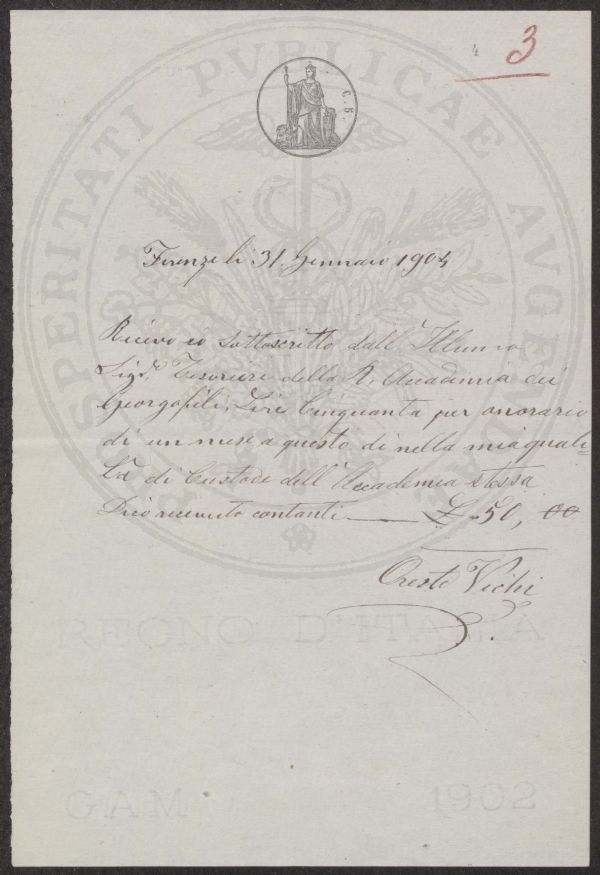 4 3
PROSPERITATI PVBLICAE AVGENDAE
C. 5.
Firenze li 31 Gennaio 1904
Ricevo io sottoscritto dall' Illumo
Sigr. Tesoriere della R. Accademia dei
Georgofili, Lire Cinquanta per onorario
di un mese a questo dì nella mia quali-
tà di Custode dell' Accademia stessa
Dico ricevuto contanti — £ 50, 00
Oreste Vichi
REGNO D'ITALIA
GAM 1902